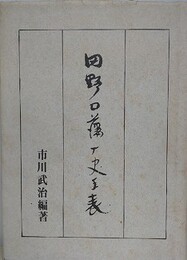 田野口藩大史年表
市川武治編著